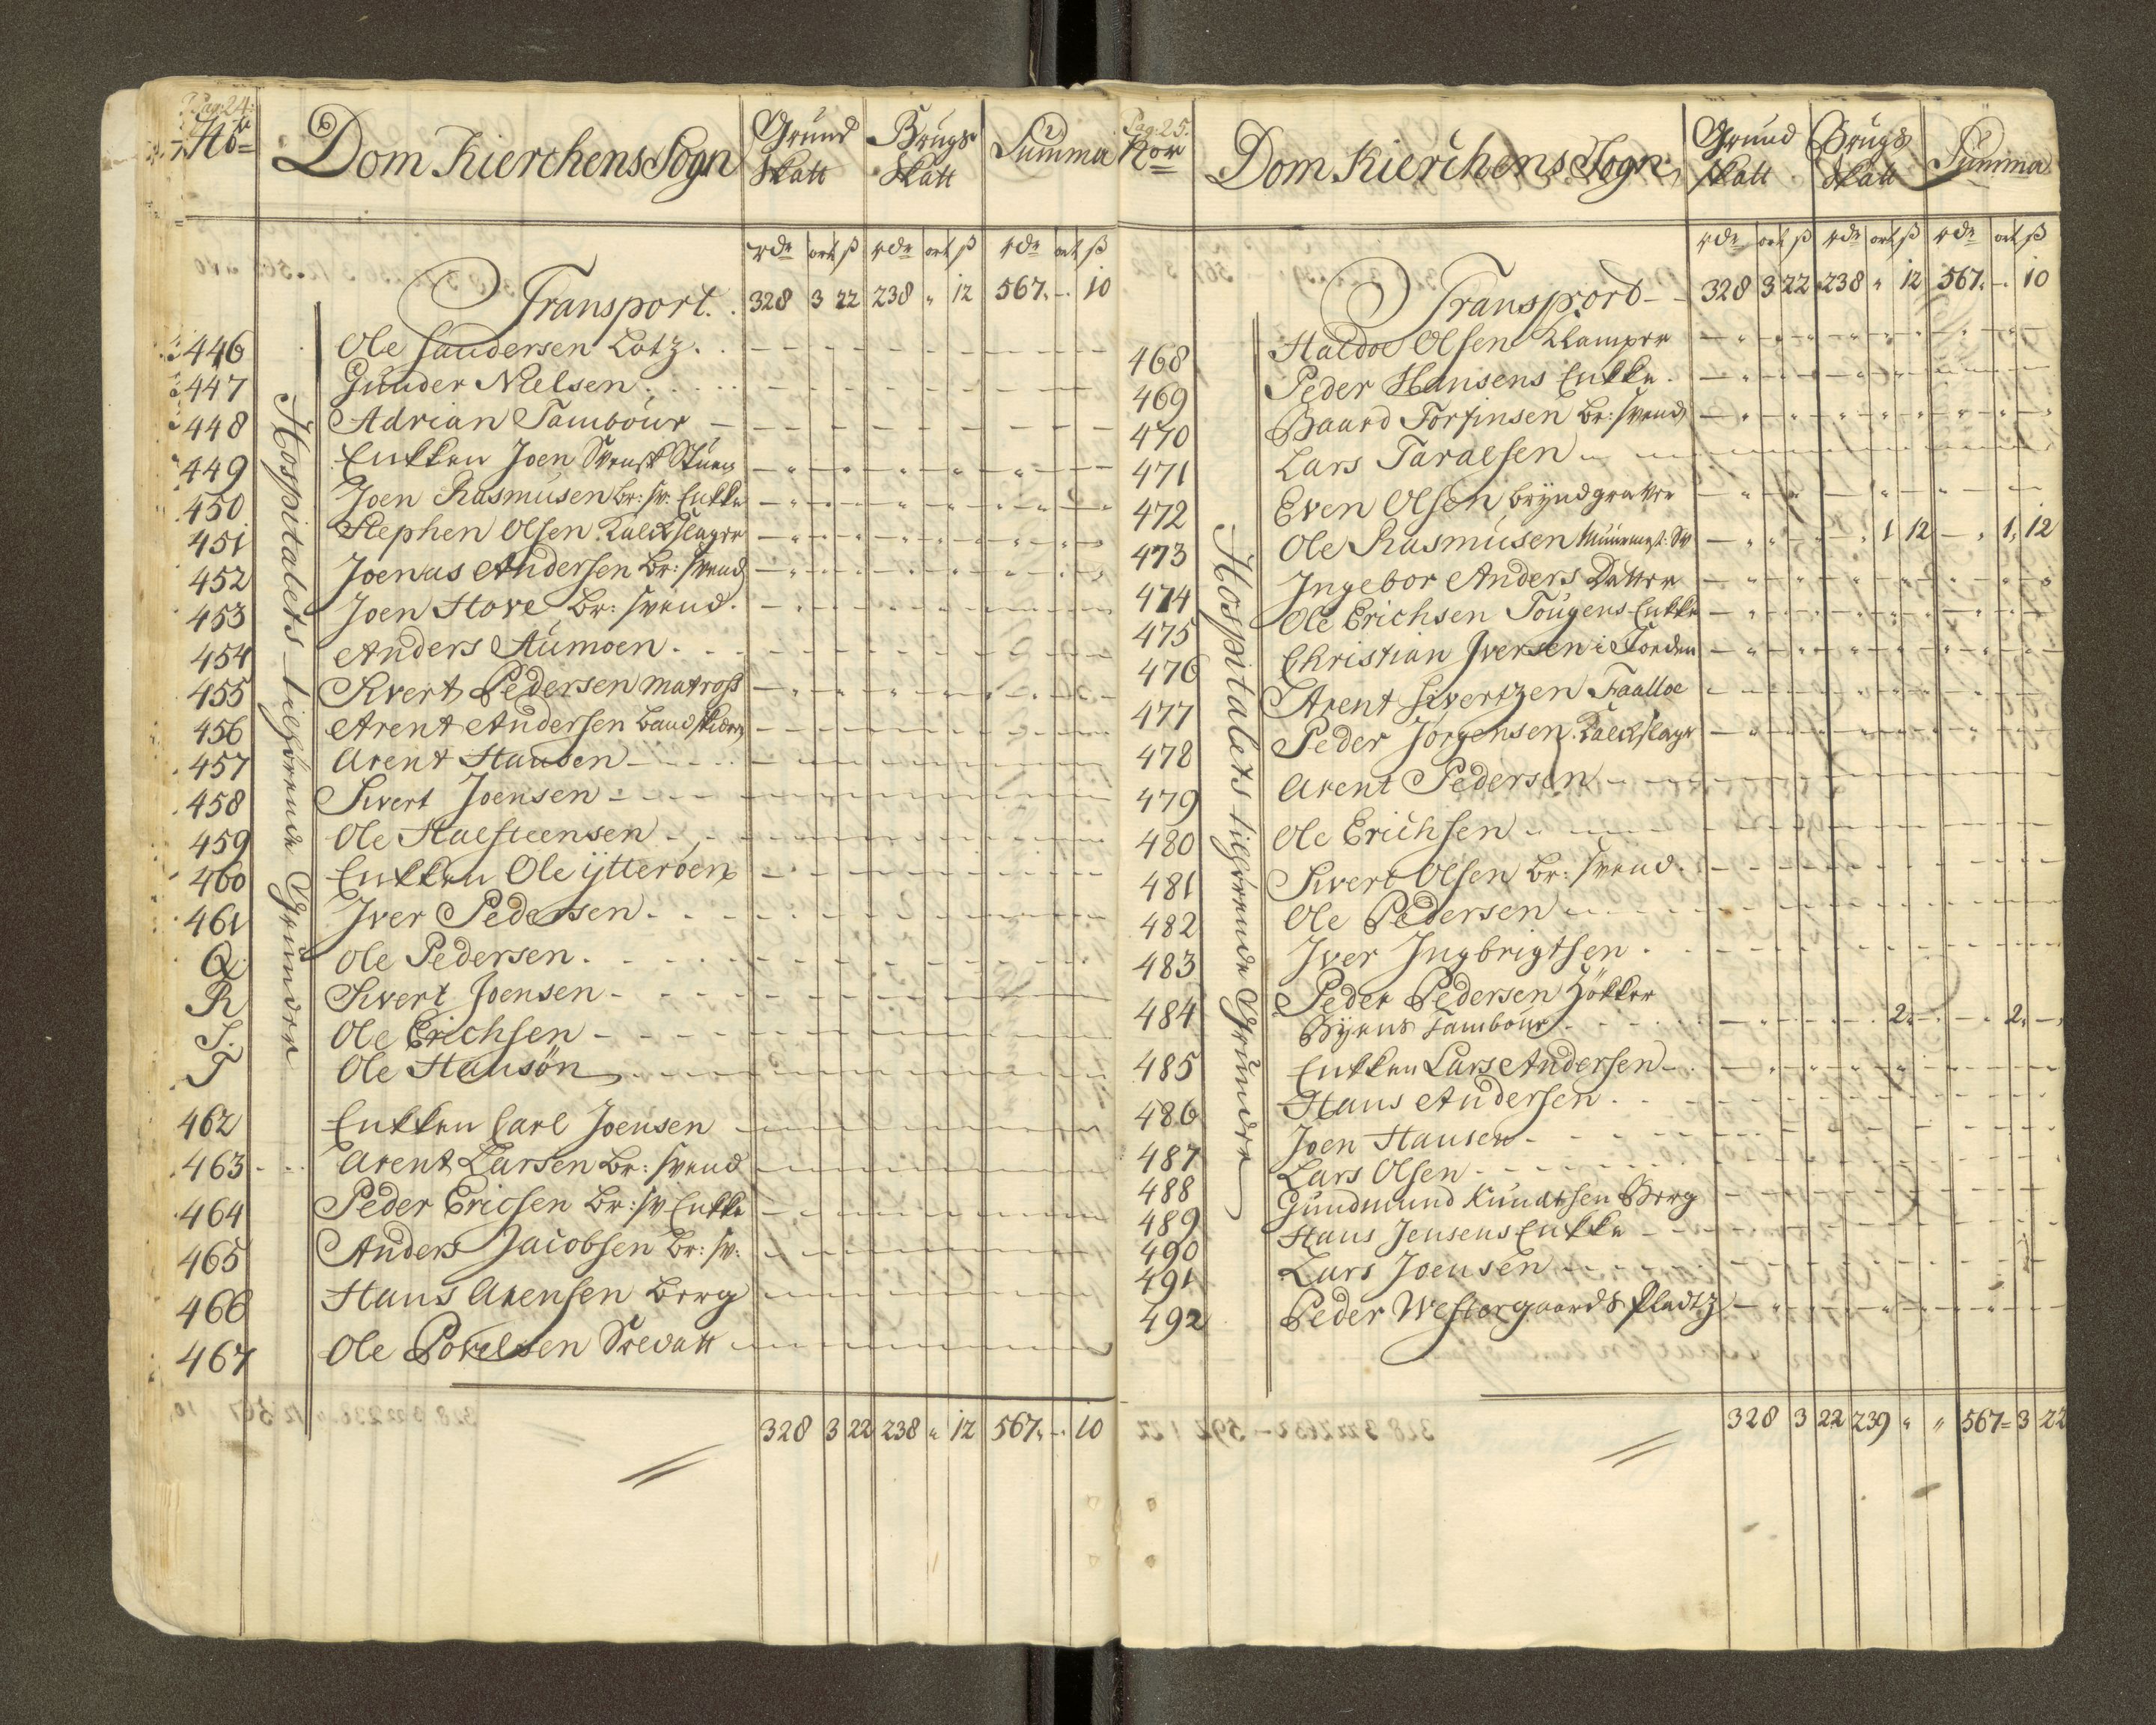 Pag: 24:
No
Dom Kierchens Sogn
Grund Skatt
Brugs Skatt
Summa
rdr ort ß rdr ort ß rdr ort ß
Transport. 328 3 22 238 " 12 567 " - 10
Hospitalets tilhörende Grunder
446 Ole Saudersen Lotz
447 Gunder Nielsen
448 Adrian Tambour
449 Enkken Joen Svensk
450 Joen Rasmusen Br: sv: Enkke
451 Stephen Olsen Kalckslager
452 Joenas Andersen Br: svend
453 Joen Hove Br: svend
454 Anders Aumoen
455 Sivert Pedersen Matross
456 Arent Andersen
457 Arent Hansen
458 Sivert Joensen
459 Ole Halsteensen
460 Enkken Ole ytteröen
461 Iver Pedersen
Q Ole Pedersen
R Sivert Joensen
S. Ole Erichsen
T Ole Hansön
462 Enkken Carl Joensen
463 Arent Larsen Br: svend
464 Peder Ericsen Br: sv: Enkke
465 Anders Jacobsen Br: sv:
466 Hans Arensen Berg
467 Ole Povelsen
328 3 22 238 " 12 567 " - 10
Pag: 25.
No
Dom Kierchens Sogn
Grund Skatt
Brugs Skatt
Summa
rdr ort ß rdr ort ß rdr ort ß
Transport 328 3 22 238 " 12 567 " - 10
Hospitalets tilhörende Grunder
468 Haldoe Olsen Klamper
469 Peder Hansens Enkke
470 Baard Torfinsen Br: svend
471 Lars Taralsen
472 Even Olsen Bryndgraver
473 Ole Rasmusen Muurmest: Sv 1 12 1 12
474 Ingebor Anders Datter
475 Ole Erichsen Tougens Enkke
476 Christian Iversen i Fiorden
477 Arent Sivertzen Faalloe
478 Peder Jörgensen Kalckslager
479 Arent Pedersen
480 Ole Erichsen
481 Sivert Olsen Br: svend
482 Ole Pedersen
483 Iver Ingbrigtsen
484 Peder Pedersen Hökker
Byens Tambour 2 " - 2 " -
485 Enkken Lars Andersen
486 Hans Andersen
487 Joen Hansen
488 Lars Olsen
489 Gundmund Knudtsen Berg
490 Hans Jensens Enkke
491 Lars Joensen
492 Peder Westergaards Pladtz
328 3 22 239 " " 567 = 3 22